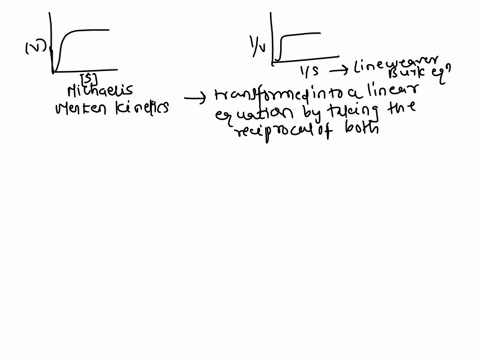 (V)
[S]
Michaelis
Menten Kinetics
1/V
1/S → Lineweaver
Burk eqn
→ transformed into a linear
equation by taking the
reciprocal of both